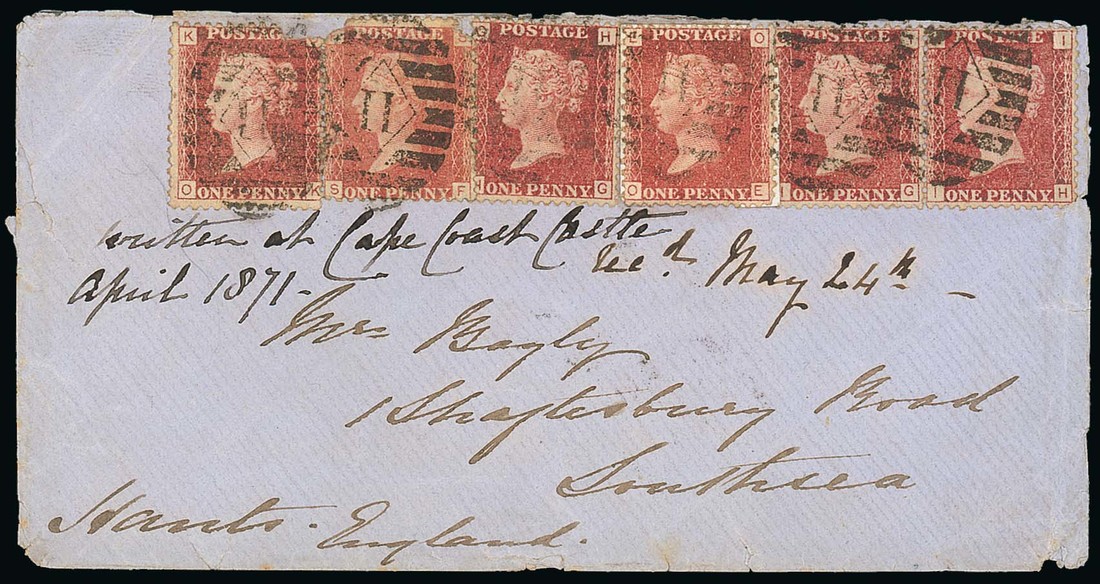 POSTAGE POSTAGE POSTAGE POSTAGE POSTAGE POSTAGE
K H O I
II II II
O ONE PENNY K S ONE PENNY F I ONE PENNY G O ONE PENNY E I ONE PENNY G I ONE PENNY H
written at Cape Coast Castle
recd. May 24th -
April 1871-
Mrs Bayly
1 Shaftesbury Road
Southsea
Hants. England.